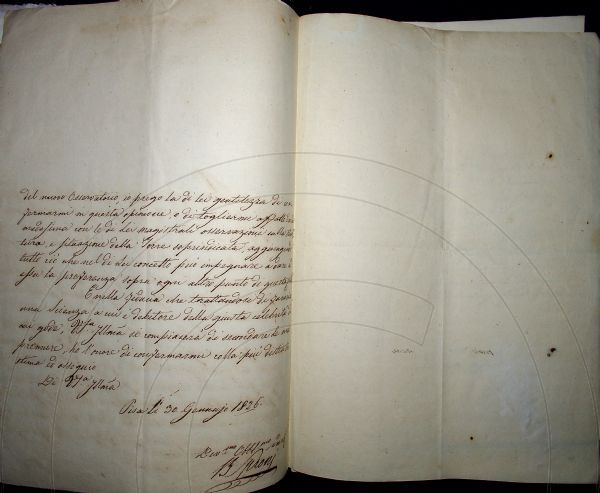 del nuovo Osservatorio, io prego la di lei gentilezza di con
fermarmi in questa opinione, o di togliermi affatto
medesima con le di Lei magistrali osservazioni sulla
tura, e situazione della Torre sopraindicata, aggiungendo
tutto ciò che nel di Lei concetto può impegnare a dare
essa la preferenza sopra ogni altro punto di questa
E nella fiducia che trattandosi di
una Scienza a cui è debitore della giusta celebrità di
cui gode, V.S.a Ill.ma si compiacerà di secondare le mie
premure, ho l'onore di confermarmi colla più distinta
stima ed ossequio
Di V.S.a Ill.ma
Pisa li 30 Gennajo 1826
Dev.mo Obbl.mo